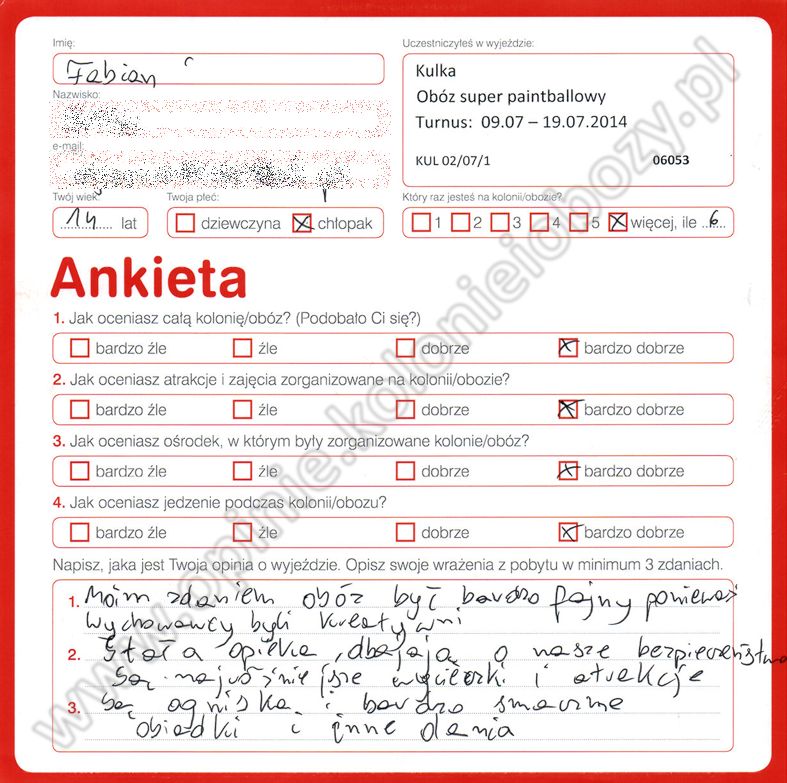 Imię:
Fabian
Uczestniczyłeś w wyjeździe:
Kulka
Obóz super paintballowy
Turnus: 09.07 – 19.07.2014
KUL 02/07/1 06053
Nazwisko:
e-mail:
Twój wiek
14 lat
Twoja płeć:
dziewczyna chłopak
Który raz jesteś na kolonii/obozie?
1 2 3 4 5 więcej, ile 6
Ankieta
1. Jak oceniasz całą kolonię/obóz? (Podobało Ci się?)
bardzo źle źle dobrze bardzo dobrze
2. Jak oceniasz atrakcje i zajęcia zorganizowane na kolonii/obozie?
bardzo źle źle dobrze bardzo dobrze
3. Jak oceniasz ośrodek, w którym były zorganizowane kolonie/obóz?
bardzo źle źle dobrze bardzo dobrze
4. Jak oceniasz jedzenie podczas kolonii/obozu?
bardzo źle źle dobrze bardzo dobrze
Napisz, jaka jest Twoja opinia o wyjeździe. Opisz swoje wrażenia z pobytu w minimum 3 zdaniach.
1. Moim zdaniem obóz był bardzo fajny ponieważ
wychowawcy byli kreatywni
2. Stała opieka, dbają o nasze bezpieczeństwo
Są najróżniejsze wycieczki i atrakcje
3. Są ogniska i bardzo smaczne
obiadki i inne dania
www.opinie.kolonieiobozy.pl